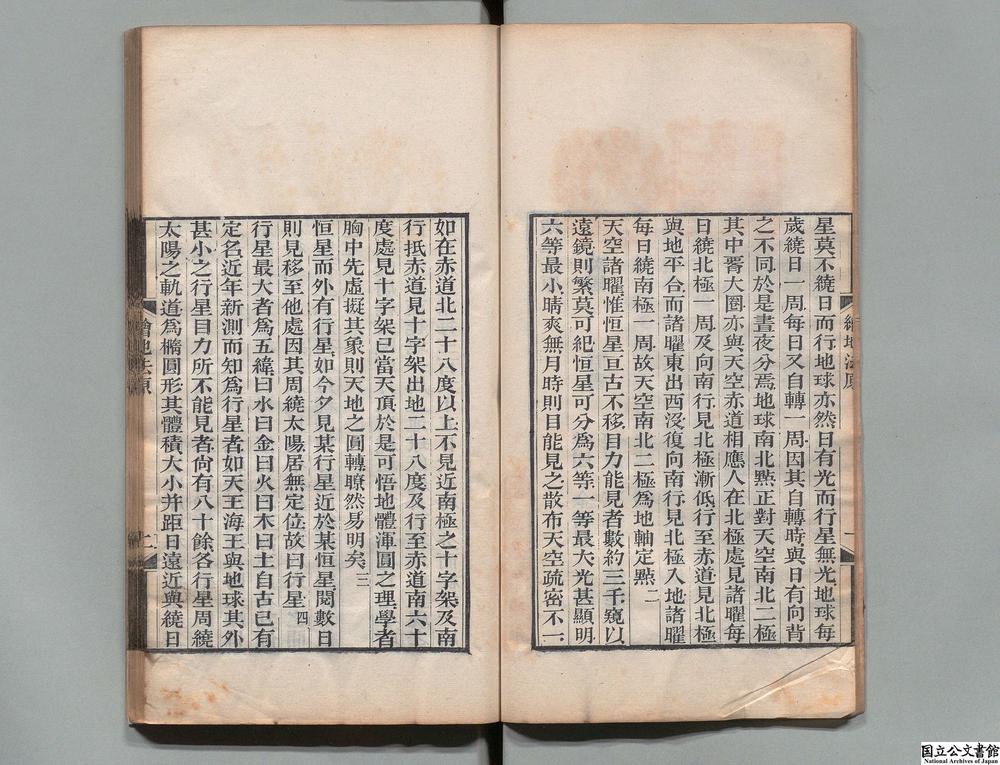 星莫不繞日而行地球亦然日有光而行星無光地球每
歲繞日一周每日又自轉一周因其自轉時與日有向背
之不同於是晝夜分焉地球南北點正對天空南北二極
其中腎大圈亦與天空赤道相應人在北極處見諸曜每
日繞北極一周及向南行見北極漸低行至赤道見北極
與地平合而諸曜東出西沒復向南行見北極入地諸曜
每日繞南極一周故天空南北二極為地軸定點二
天空諸曜惟恒星亘古不移目力能見者數約三千窺以
遠鏡則繁莫可紀恒星可分為六等一等最大光甚顯明
六等最小晴爽無月時則目能見之散布天空疏密不一
繪地法原
一
如在赤道北二十八度以上不見近南極之十字架及南
行抵赤道見十字架出地二十八度及行至赤道南六十
度處見十字架已當天頂於是可悟地體渾圓之理學者
胸中先虛擬其象則天地之圓轉瞭然易明矣三
恒星而外有行星如今夕見某行星近於某恒星閱數日
則見移至他處因其周繞太陽居無定位故曰行星四
行星最大者為五緯曰水曰金曰火曰木曰土自古已有
定名近年新測而知為行星者如天王海王與地球其外
甚小之行星目力所不能見者尙有八十餘各行星周繞
太陽之軌道為橢圓形其體積大小幷距日遠近與繞日
繪地法原
二
国立公文書館
National Archives of Japan